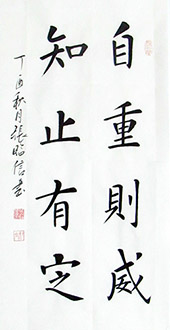 自重則威
知止有定
丁酉秋月張昭信書